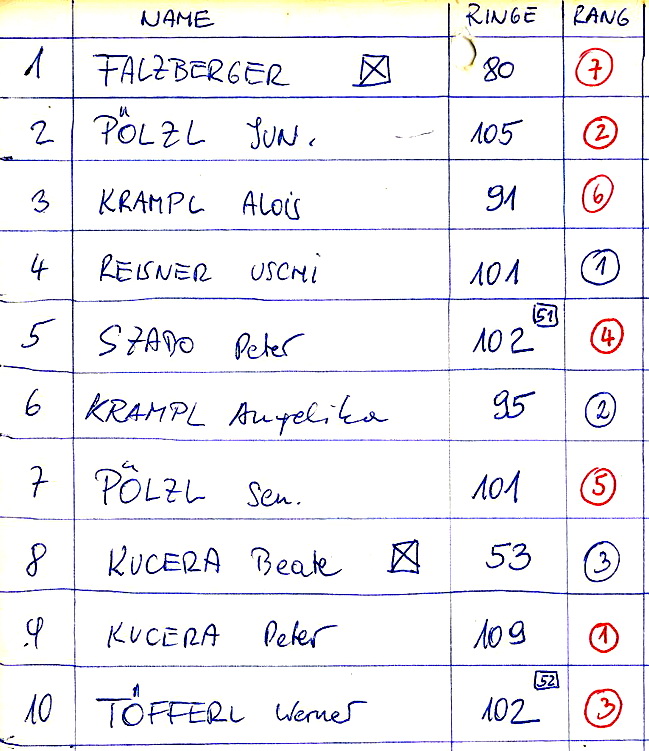 NAME RINGE RANG
1 FALZBERGER 80 7
2 PÖLZL JUN. 105 2
3 KRAMPL Alois 91 6
4 REISNER USCHI 101 1
5 SZABO Peter 102 51 4
6 KRAMPL Angelika 95 2
7 PÖLZL Sen. 101 5
8 KUCERA Beate 53 3
9 KUCERA Peter 109 1
10 TÖFFERL Werner 102 52 3